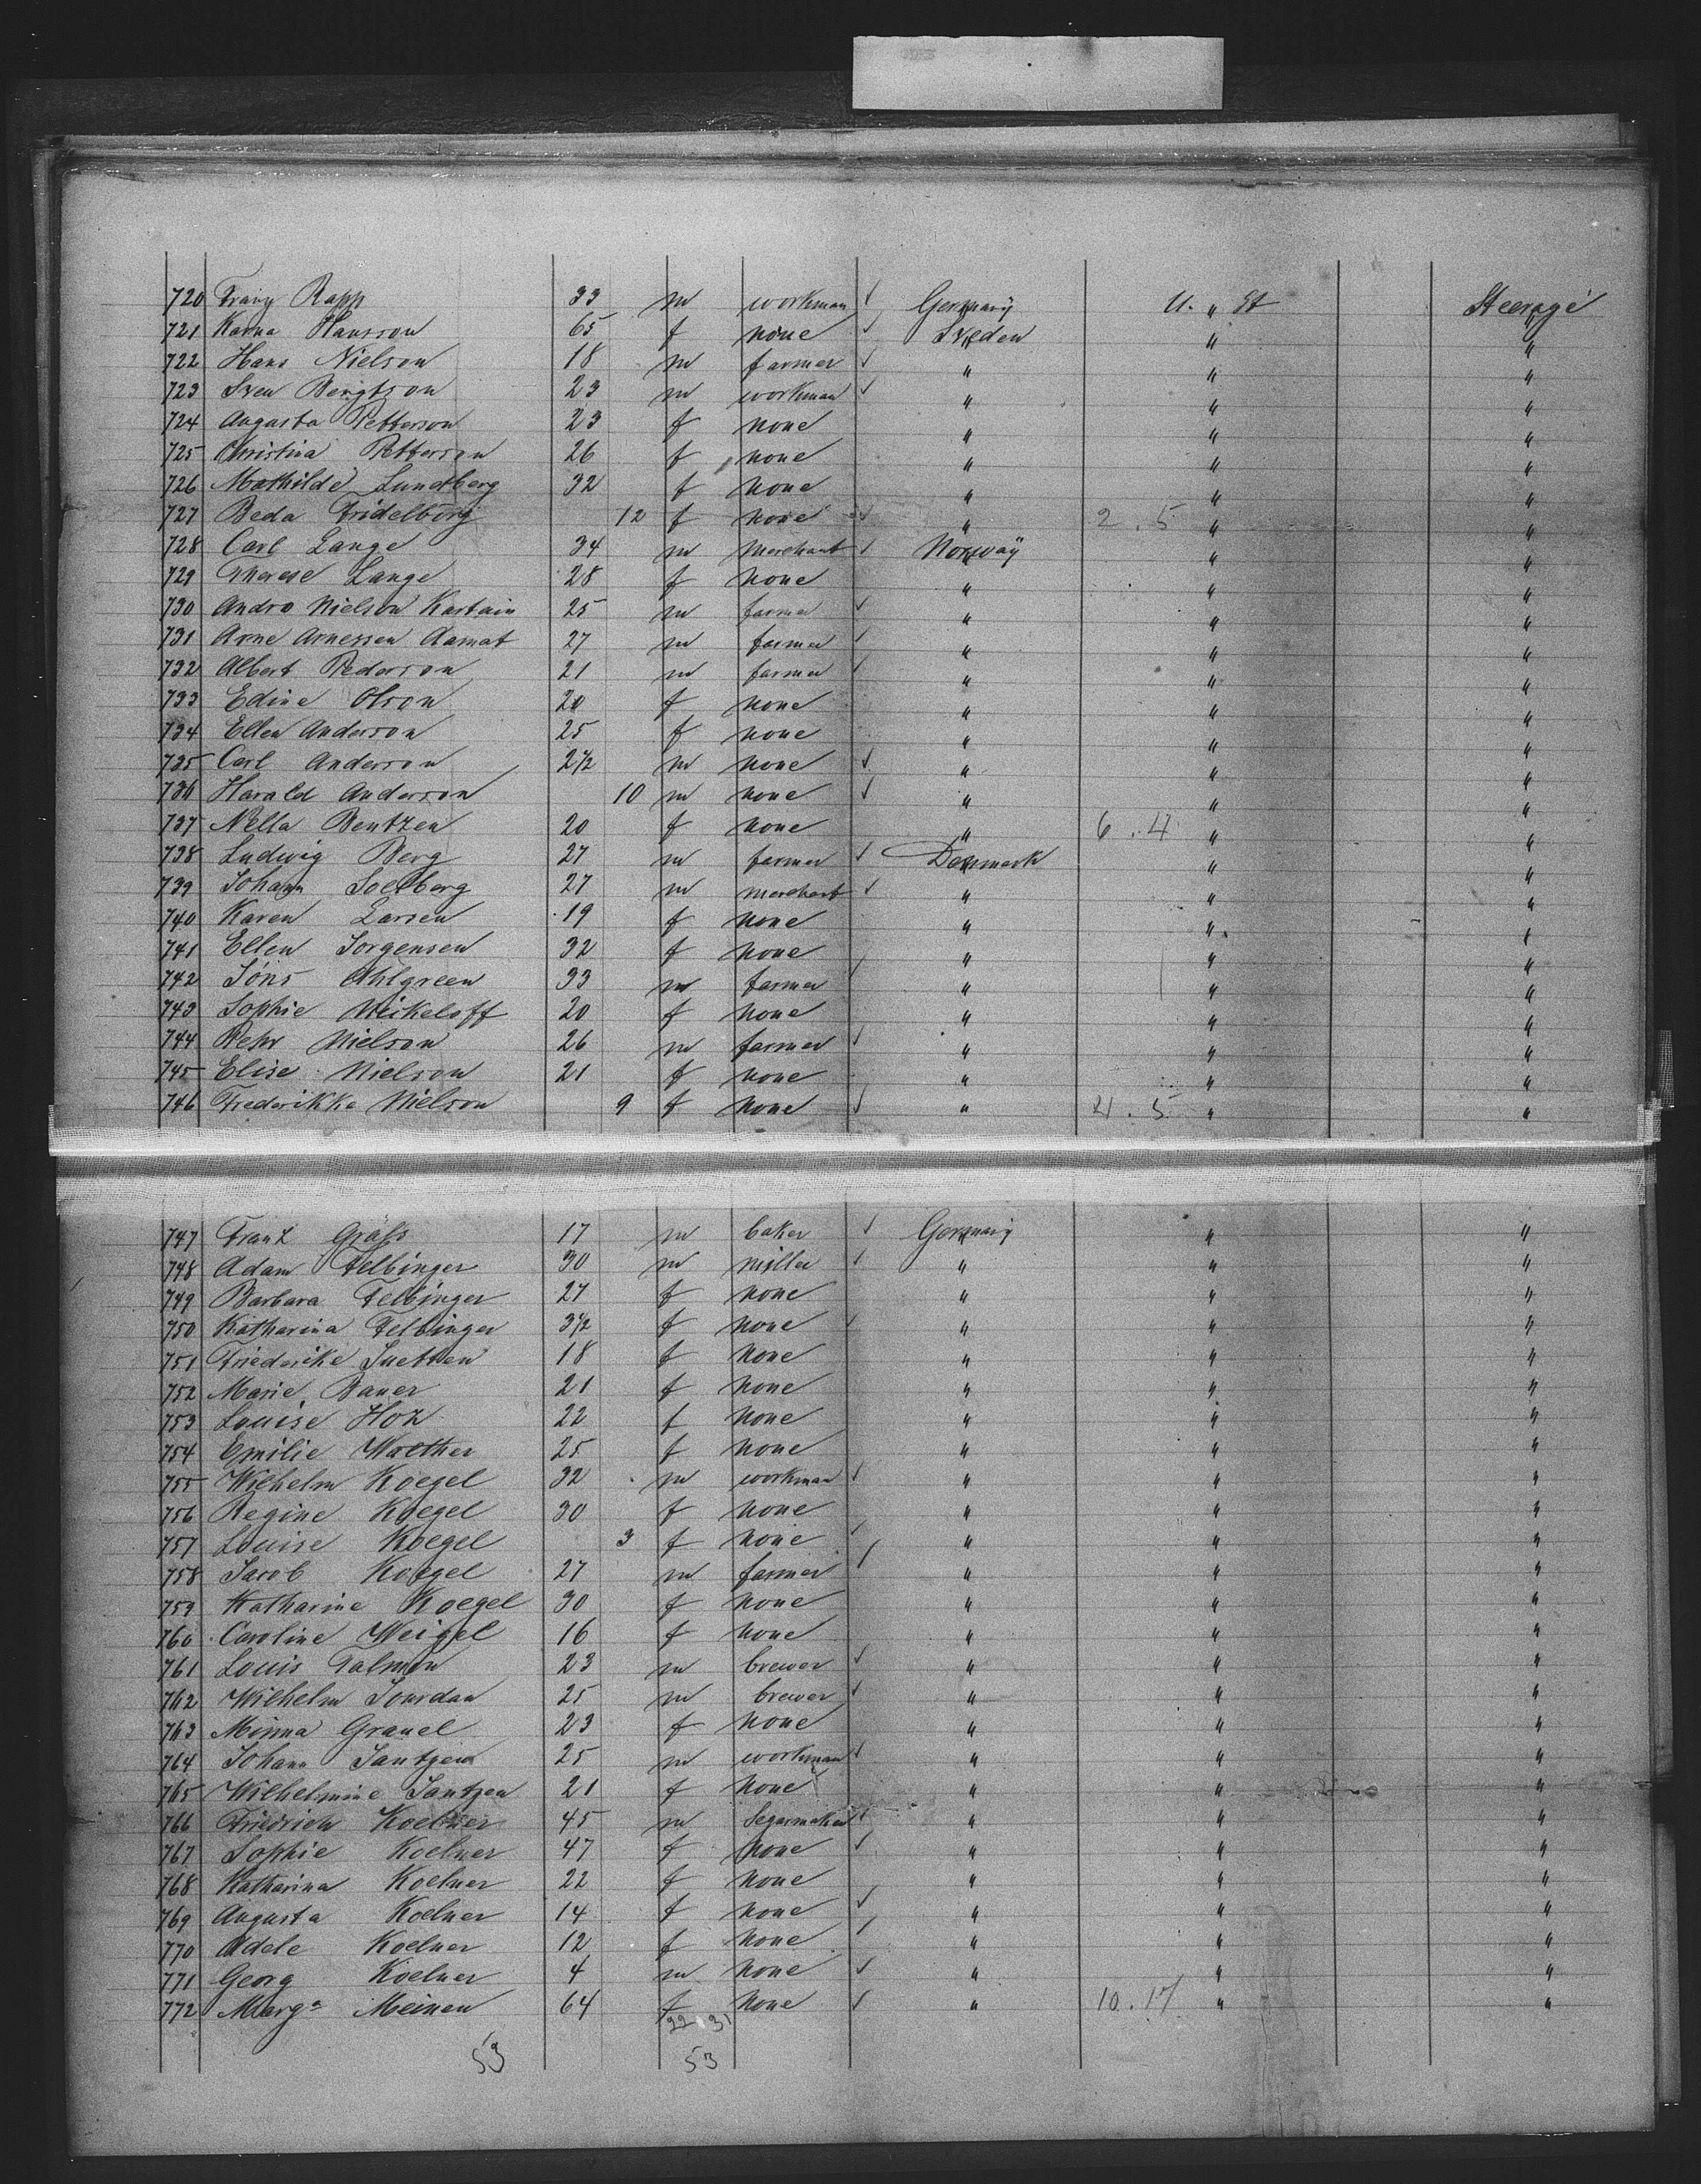 720 Franz Rapp 33 m workman ✓ Germany U. " St Steerage
721 Karna Hansson 65 f none ✓ Sveden " "
722 Hans Nielson 18 m farmer ✓ " " "
723 Sven Bengtson 23 m workman ✓ " " "
724 Augusta Petterson 23 f none " " "
725 Christina Petterson 26 f none " " "
726 Mathilde Lundberg 32 f none " " "
727 Beda Fridelborg 12 f none ✓ " 2 . 5 " "
728 Carl Lange 34 m merchant ✓ Norway " "
729 Therese Lange 28 f none " " "
730 Andro Nielson Kastain 25 m farmer ✓ " " "
731 Arne Arnessen Aamat 27 m farmer ✓ " " "
732 Albert Pederson 21 m farmer ✓ " " "
733 Edine Olson 20 f none " " "
734 Ellen Anderson 25 f none " " "
735 Carl Anderson 2 1/2 m none ✓ " " "
736 Harald Anderson 10 m none ✓ " " "
737 Nella Bentzen 20 f none " 6 . 4 " "
738 Ludwig Berg 27 m farmer ✓ Denmark " "
739 Johann Soelberg 27 m merchant ✓ " " "
740 Karen Larsen 19 f none " " "
741 Ellen Jorgensen 32 f none " " "
742 Jöns Ahlgreen 33 m farmer ✓ " " "
743 Sophie Meikeloff 20 f none " " "
744 Pehr Nielson 26 m farmer ✓ " " "
745 Elise Nielson 21 f none " " "
746 Frederikke Nielson 9 f none ✓ " 4 . 5 " "
747 Franz Grafs 17 m baker ✓ Germany " "
748 Adam Felbinger 30 m miller ✓ " " "
749 Barbara Felbinger 27 f none " " "
750 Katharina Felbinger 3 1/2 f none ✓ " " "
751 Friederike Suetten 18 f none " " "
752 Marie Bauer 21 f none " " "
753 Louise Hoz 22 f none " " "
754 Emilie Walther 25 f none " " "
755 Wilhelm Koegel 32 m workman ✓ " " "
756 Regine Koegel 30 f none " " "
757 Louise Koegel 3 f none ✓ " " "
758 Jacob Koegel 27 m farmer ✓ " " "
759 Katharine Koegel 30 f none " " "
760 Caroline Weigel 16 f none " " "
761 Louis Talmon 23 m brewer ✓ " " "
762 Wilhelm Jourdan 25 m brewer ✓ " " "
763 Minna Grauel 23 f none " " "
764 Johann Jantzen 25 m workman ✓ " " "
765 Wilhelmine Jantzen 21 f none " " "
766 Friedrich Koelner 45 m Segarmaker ✓ " " "
767 Sophie Koelner 47 f none ✓ " " "
768 Katharina Koelner 22 f none " " "
769 Augusta Koelner 14 f none ✓ " " "
770 Adele Koelner 12 f none ✓ " " "
771 Georg Koelner 4 m none ✓ " " "
772 Marga Meinen 64 f none ✓ " 10 . 17 " "
22 . 31
53 53